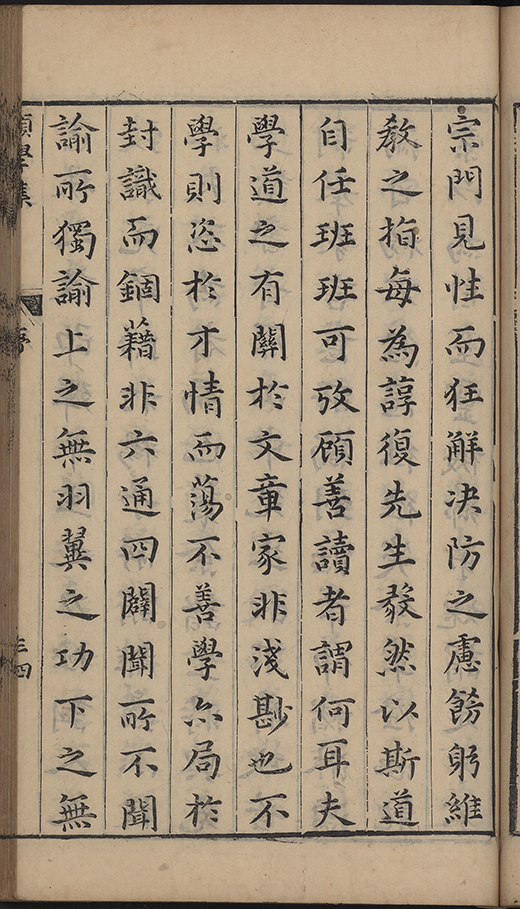 宗門見性而狂解决防之慮餝躬維
教之指每為諄復先生毅然以斯道
自任班班可攷顧善讀者謂何耳夫
學道之有關於文章家非淺尠也不
學則恣於才情而蕩不善學亦局於
封識而錮藉非六通四闢聞所不聞
諭所獨諭上之無羽翼之功下之無
願學集
序
三四